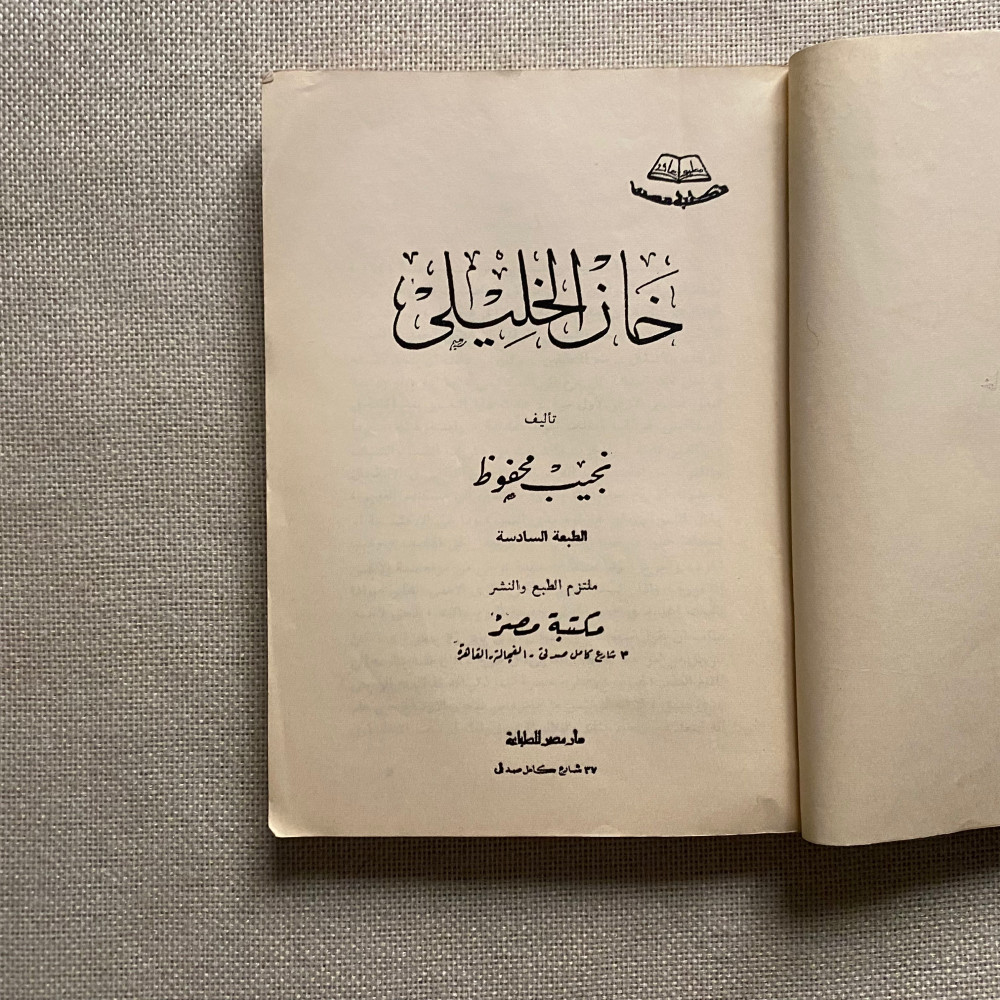 مطبوعات
مكتبة مصر
خان الخليلى
تأليف
نجيب محفوظ
الطبعة السادسة
ملتزم الطبع والنشر
مكتبة مصر
٣ شارع كامل صدقى - الفجالة - القاهرة
دار مصر للطباعة
٣٧ شارع كامل صدقى